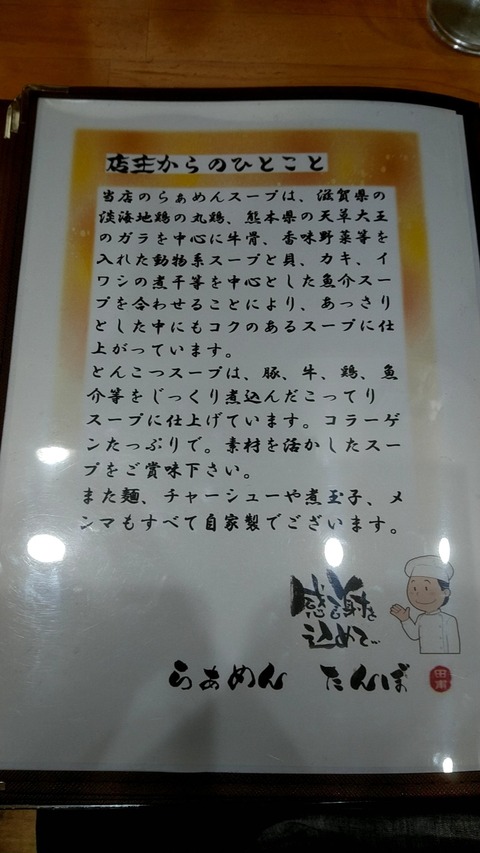 店主からのひとこと
当店のらぁめんスープは、滋賀県の
淡海地鶏の丸鶏、熊本県の天草大王
のガラを中心に牛骨、香味野菜等を
入れた動物系スープと貝、カキ、イ
ワシの煮干等を中心とした魚介スー
プを合わせることにより、あっさり
とした中にもコクのあるスープに仕
上がっています。
とんこつスープは、豚、牛、鶏、魚
介等をじっくり煮込んだこってり
スープに仕上げています。コラーゲ
ンたっぷりで。素材を活かしたスー
プをご賞味下さい。
また麺、チャーシューや煮玉子、メ
ンマもすべて自家製でございます。
感謝を
込めて
らぁめん たんぼ